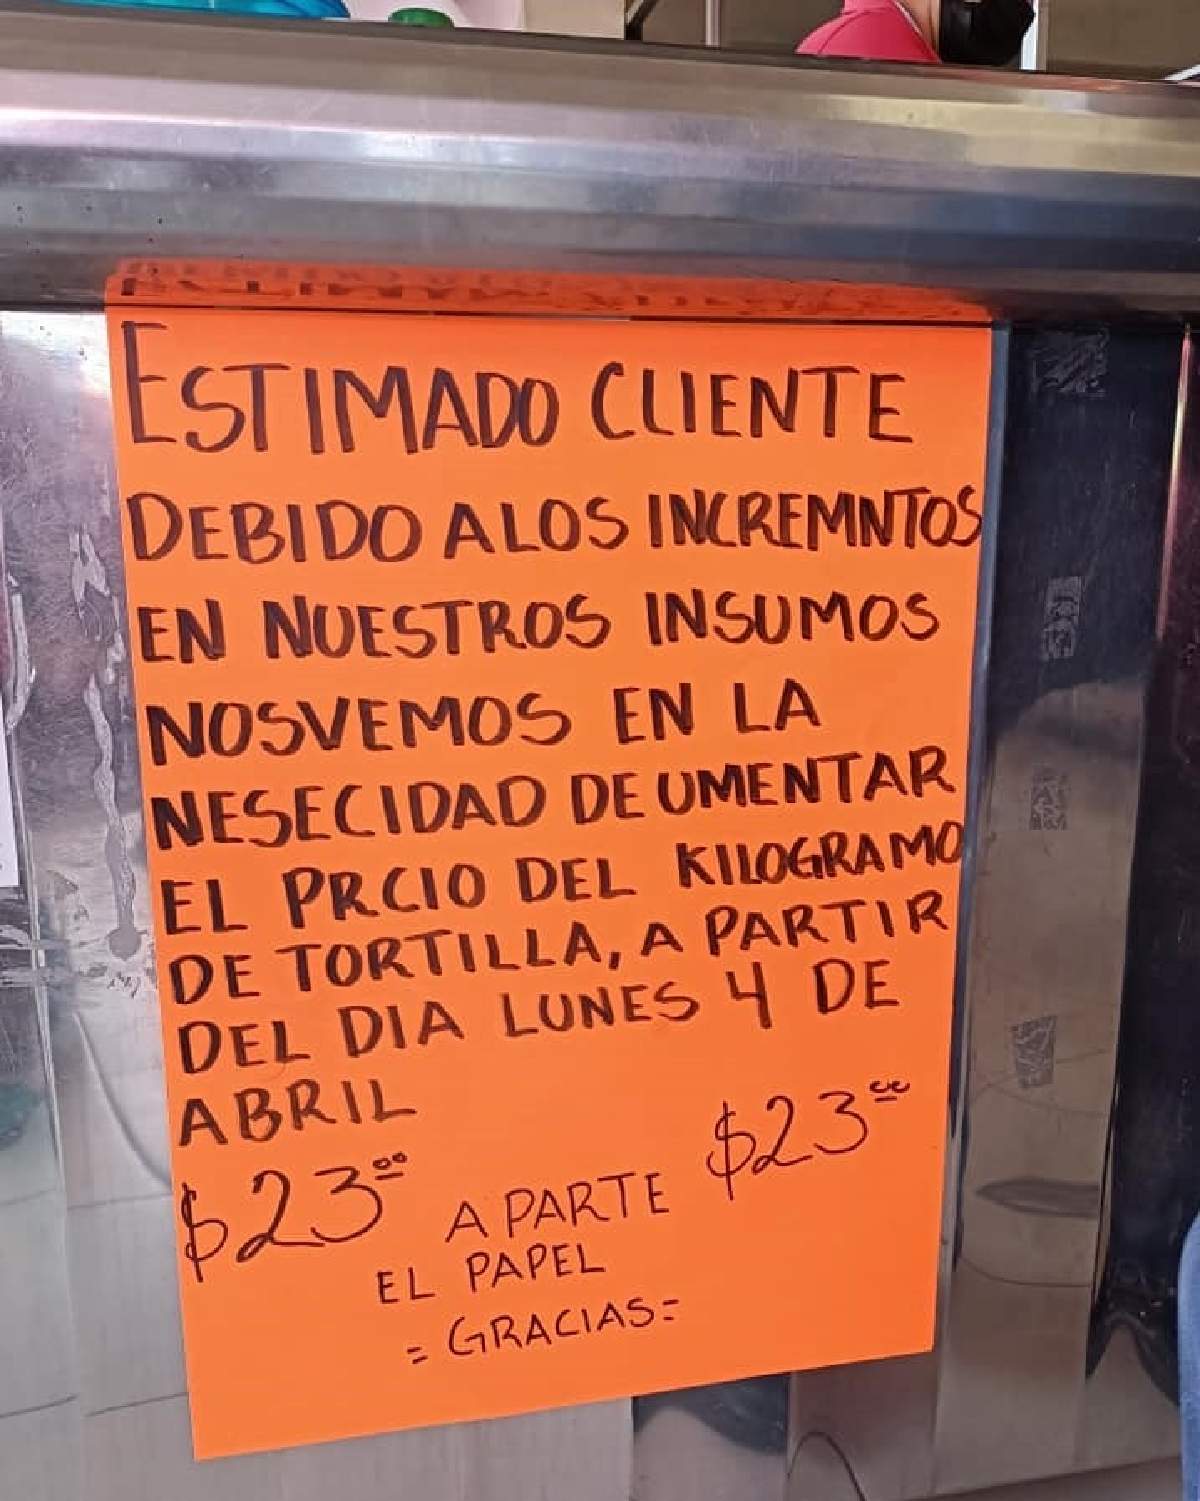 ESTIMADO CLIENTE
DEBIDO ALOS INCREMNTOS
EN NUESTROS INSUMOS
NOSVEMOS EN LA
NESECIDAD DE UMENTAR
EL PRCIO DEL KILOGRAMO
DE TORTILLA, A PARTIR
DEL DIA LUNES 4 DE
ABRIL
$23.00 A PARTE $23.00
EL PAPEL
= GRACIAS =